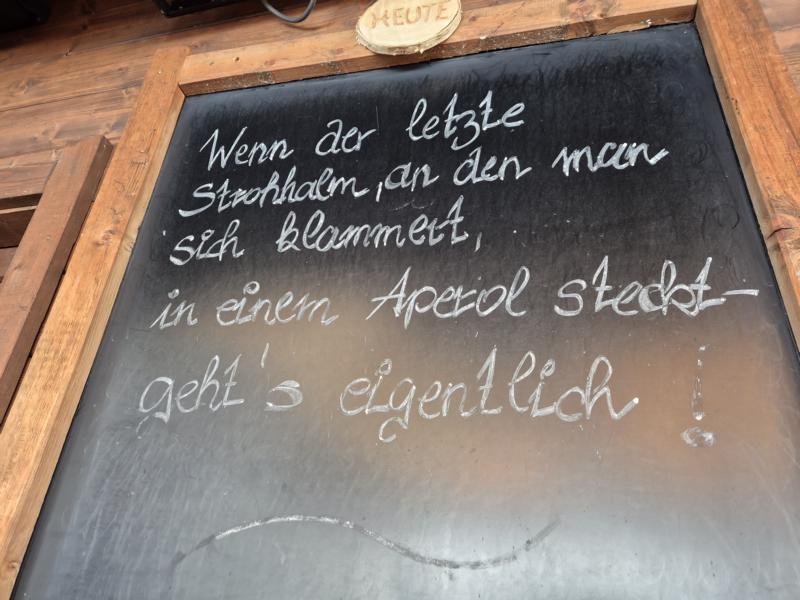 HEUTE
Wenn der letzte
Strohhalm, an den man
sich klammert,
in einem Aperol steckt-
geht's eigentlich !